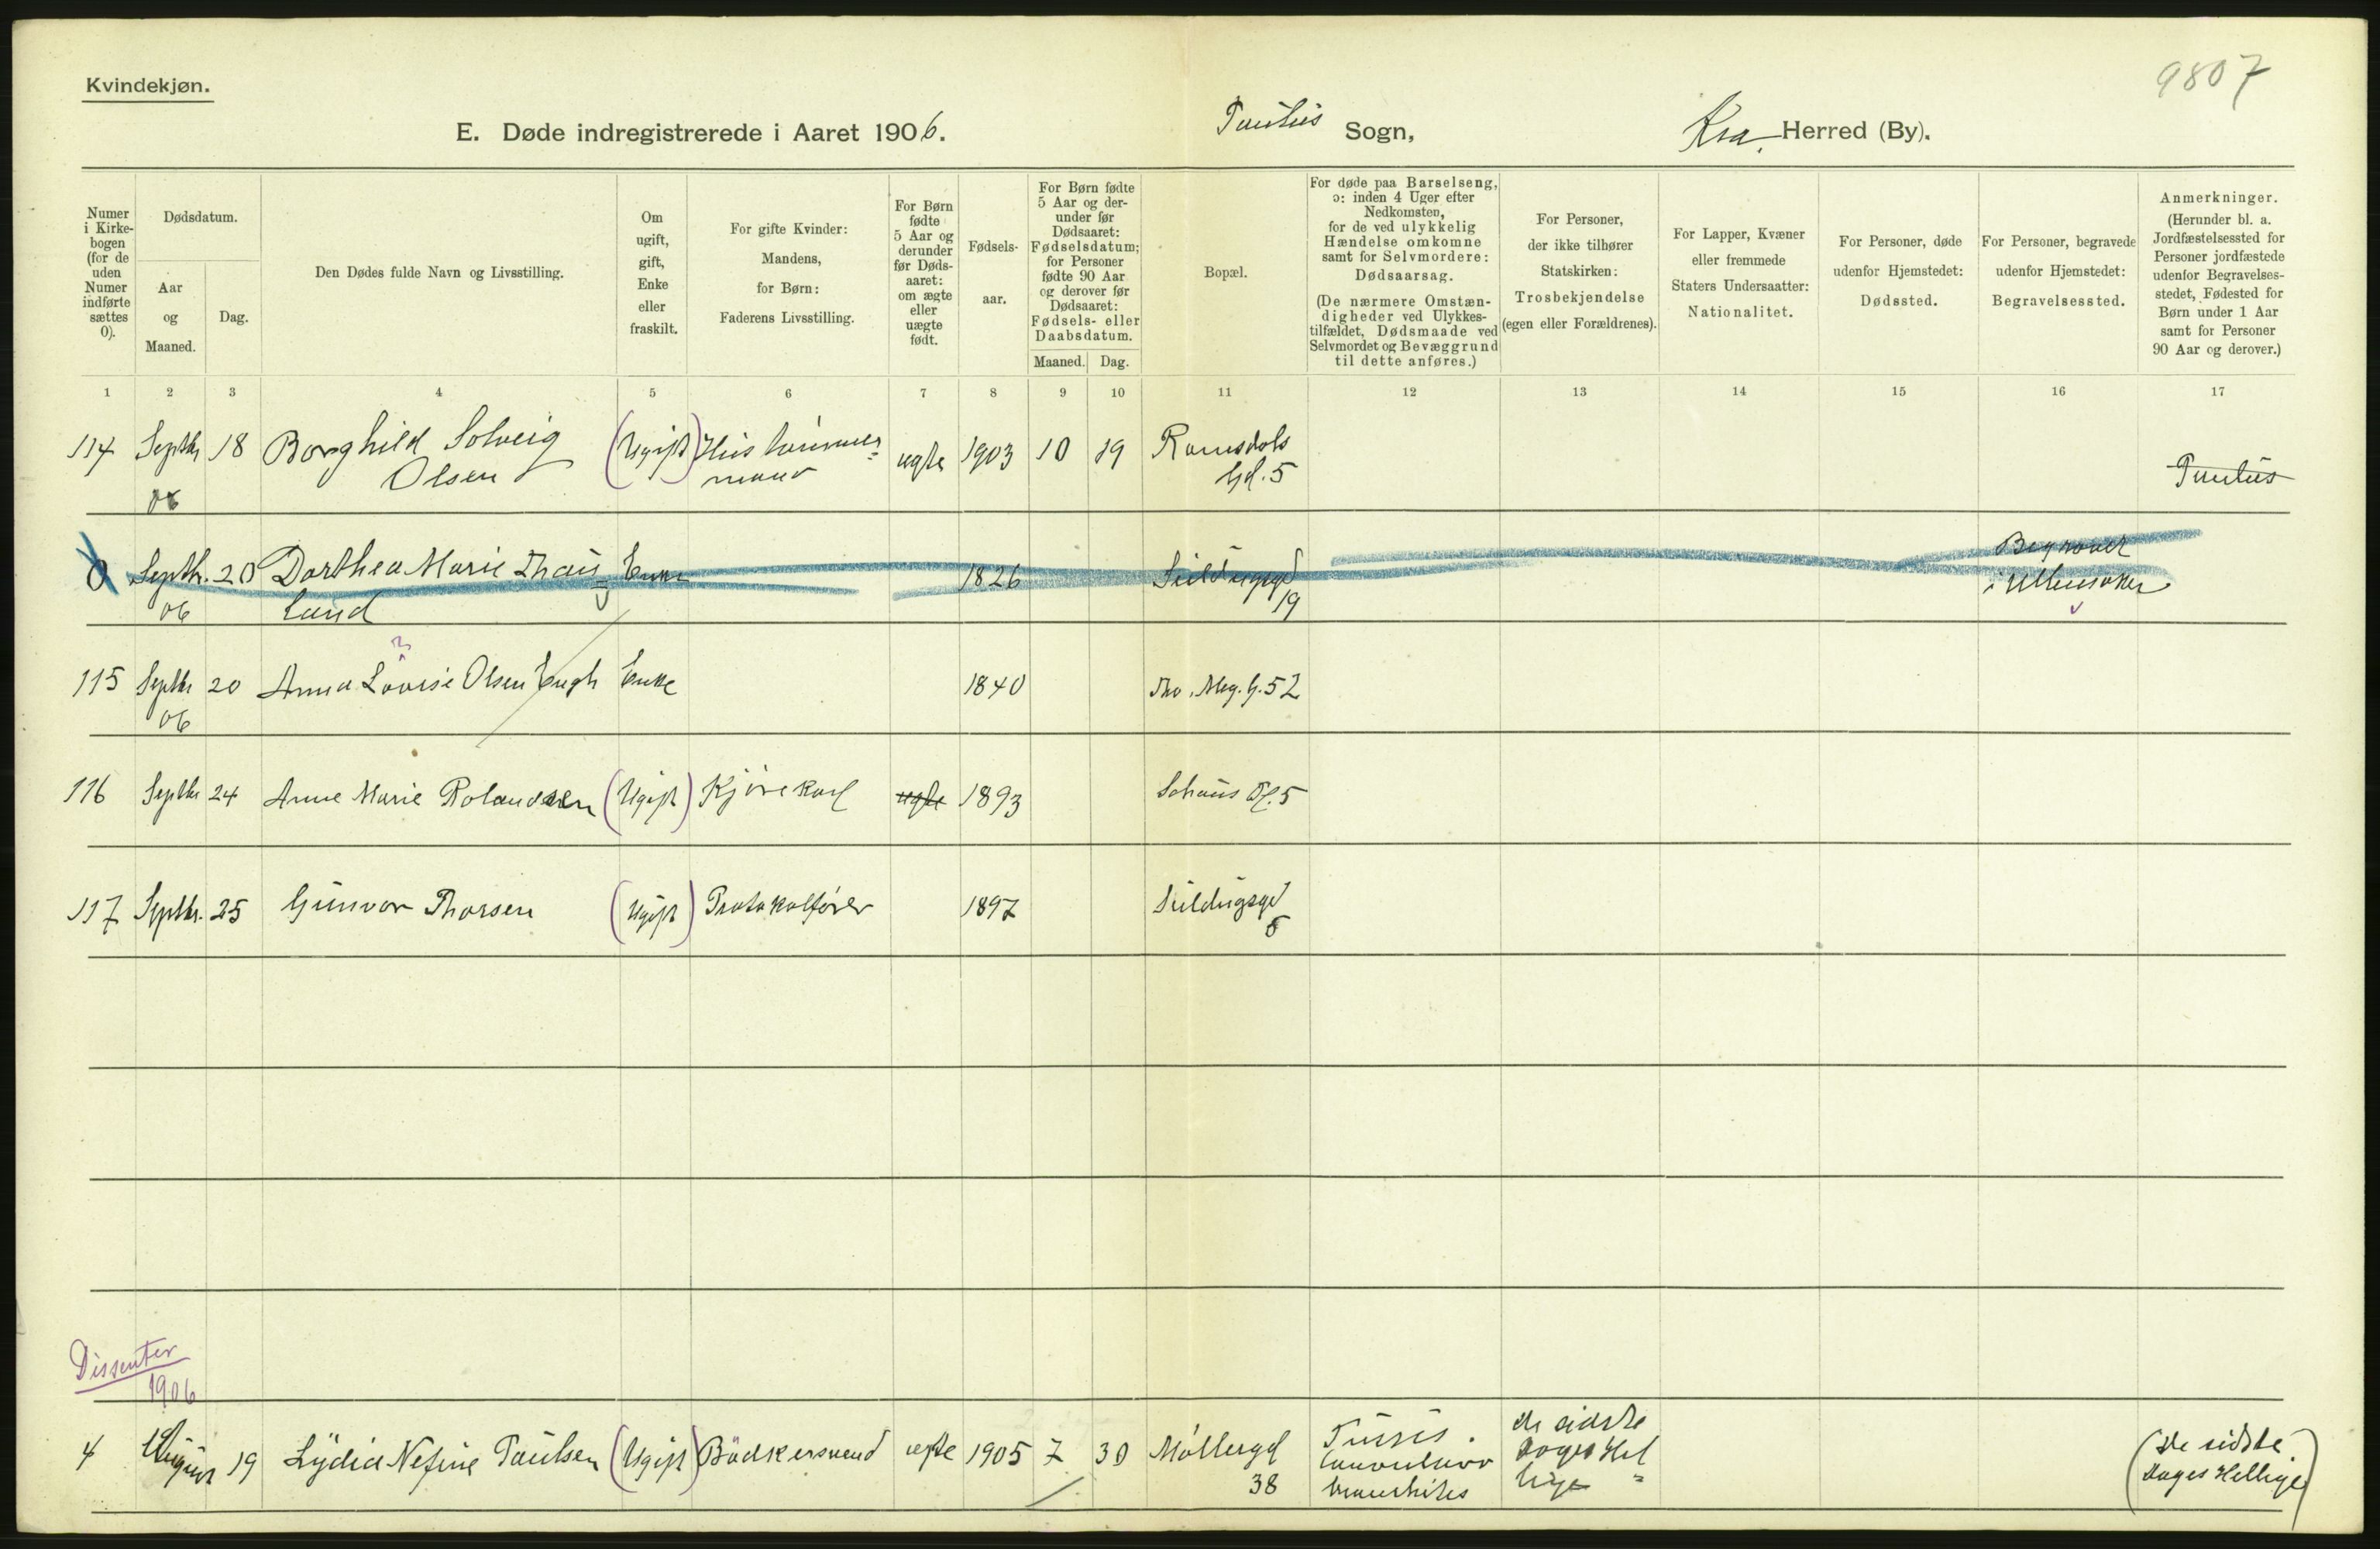 Kvindekjøn.
9807
E. Døde indregistrerede i Aaret 1906.
Paulus Sogn,
Kra. Herred (By).
Numer
i Kirke-
bogen
(for de
uden
Numer
indførte
sættes
0).
Dødsdatum.
Aar
og
Maaned.
Dag.
Den Dødes fulde Navn og Livsstilling.
Om
ugift,
gift,
Enke
eller
fraskilt.
For gifte Kvinder:
Mandens,
for Børn:
Faderens Livsstilling.
For Børn
fødte
5 Aar og
derunder
før Døds-
aaret:
om ægte
eller
uægte
født.
Fødsels-
aar.
For Børn fødte
5 Aar og der-
under før
Dødsaaret:
Fødselsdatum;
for Personer
fødte 90 Aar
og derover før
Dødsaaret:
Fødsels- eller
Daabsdatum.
Maaned. Dag.
Bopæl.
For døde paa Barselseng,
ɔ: inden 4 Uger efter
Nedkomsten,
for de ved ulykkelig
Hændelse omkomne
samt for Selvmordere:
Dødsaarsag.
(De nærmere Omstæn-
digheder ved Ulykkes-
tilfældet, Dødsmaade ved
Selvmordet og Bevæggrund
til dette anføres.)
For Personer,
der ikke tilhører
Statskirken:
Trosbekjendelse
(egen eller Forældrenes).
For Lapper, Kvæner
eller fremmede
Staters Undersaatter:
Nationalitet.
For Personer, døde
udenfor Hjemstedet:
Dødssted.
For Personer, begravede
udenfor Hjemstedet:
Begravelsessted.
Anmerkninger.
(Herunder bl. a.
Jordfæstelsessted for
Personer jordfæstede
udenfor Begravelses-
stedet, Fødested for
Børn under 1 Aar
samt for Personer
90 Aar og derover.)
1 2 3 4 5 6 7 8 9 10 11 12 13 14 15 16 17
114 Septbr 18 Borghild Solveig (Ugift) Hustømmer= ægte 1903 10 19 Romsdals
06 Olsen mand Gd. 5 Paulus
0 Septbr. 20 Dorthea Marie Thau= Enke 1826 Suldugsgd Begravet
06 lund 19 i Ullensaker
115 Septbr 20 Anna Lovise Olsen Engh Enke 1840 Thv. Meg. G. 52
06
116 Septbr 24 Anne Marie Rolandsen (Ugift) Kjørekarl ægte 1893 Schous Pl. 5
117 Septbr. 25 Gunvor Thorsen (Ugift) Protokolfører 1897
Dissenter
1906
4 August 19 Lydia Nefine Paulsen (Ugift) Bødkersvend ægte 1905 7 30 Møllergd
38
Tussis
De sidste
Dages Hel=
lige
(De sidste
Dages Hellige)